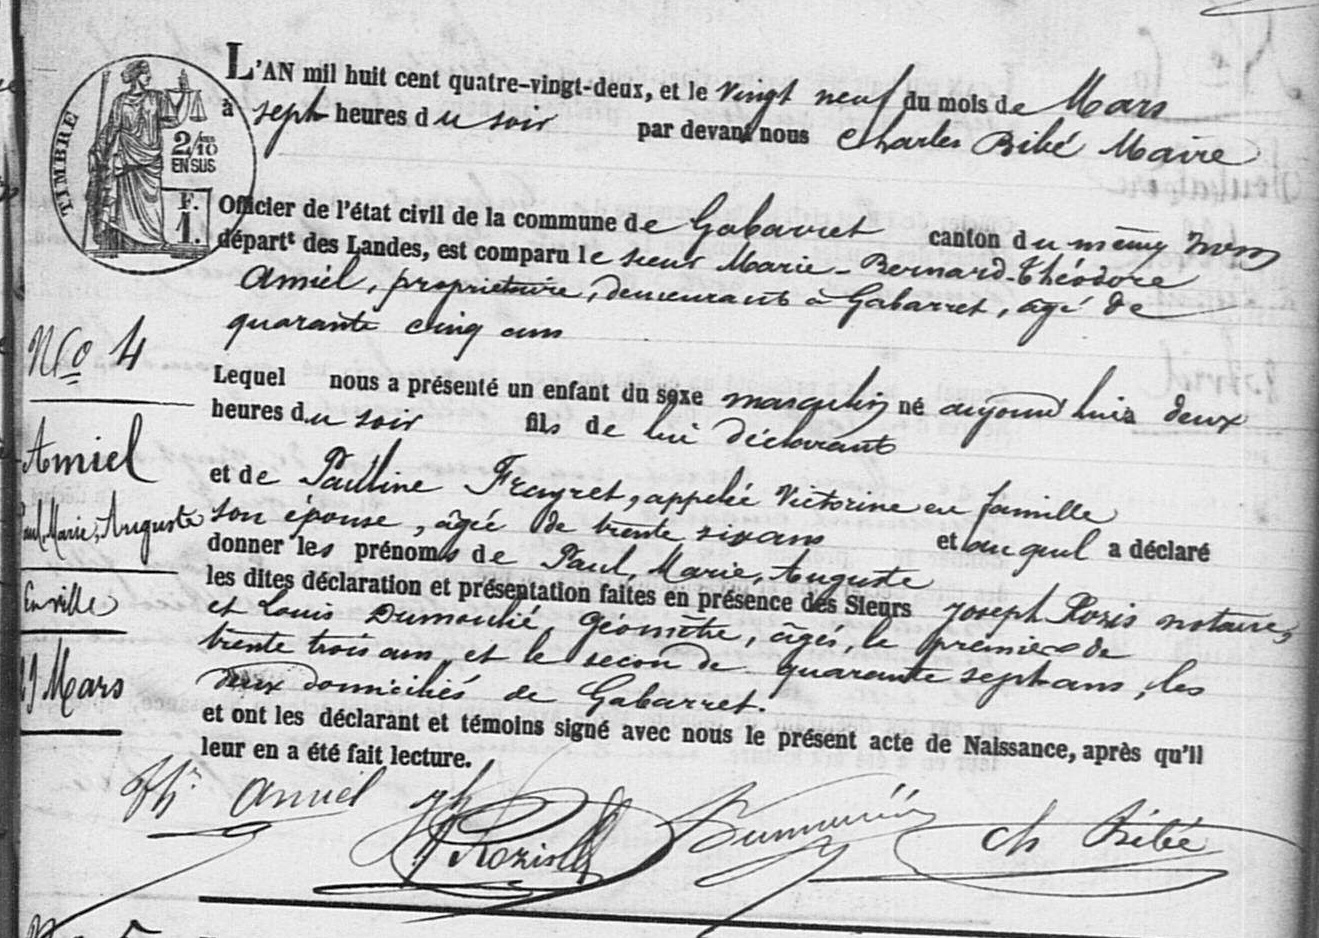 TIMBRE
2/10
EN SUS
F.
1.
L'AN mil huit cent quatre-vingt-deux, et le vingt neuf du mois de Mars
à sept heures du soir par devant nous Charles Bibé Maire
Officier de l'état civil de la commune de Gabarret canton du même nom
départt des Landes, est comparu le sieur Marie-Bernard-Théodore
Amiel, propriétaire, demeurant à Gabarret, âgé de
quarante cinq ans
Lequel nous a présenté un enfant du sexe masculin né aujourd'hui à deux
heures du soir fils de lui déclarant
et de Pauline Frayret, appelée Victorine en famille
son épouse, âgée de trente six ans et auquel a déclaré
donner les prénoms de Paul, Marie, Auguste
les dites déclaration et présentation faites en présence des Sieurs Joseph Rozis notaire,
et Louis Dumoulié, géomètre, âgés, le premier de
trente trois ans, et le second de quarante sept ans, les
deux domiciliés de Gabarret.
et ont les déclarant et témoins signé avec nous le présent acte de Naissance, après qu'il
leur en a été fait lecture.
No 4
Amiel
Paul, Marie, Auguste
En ville
29 Mars
Th. Amiel
Rozis
Ch Bibé